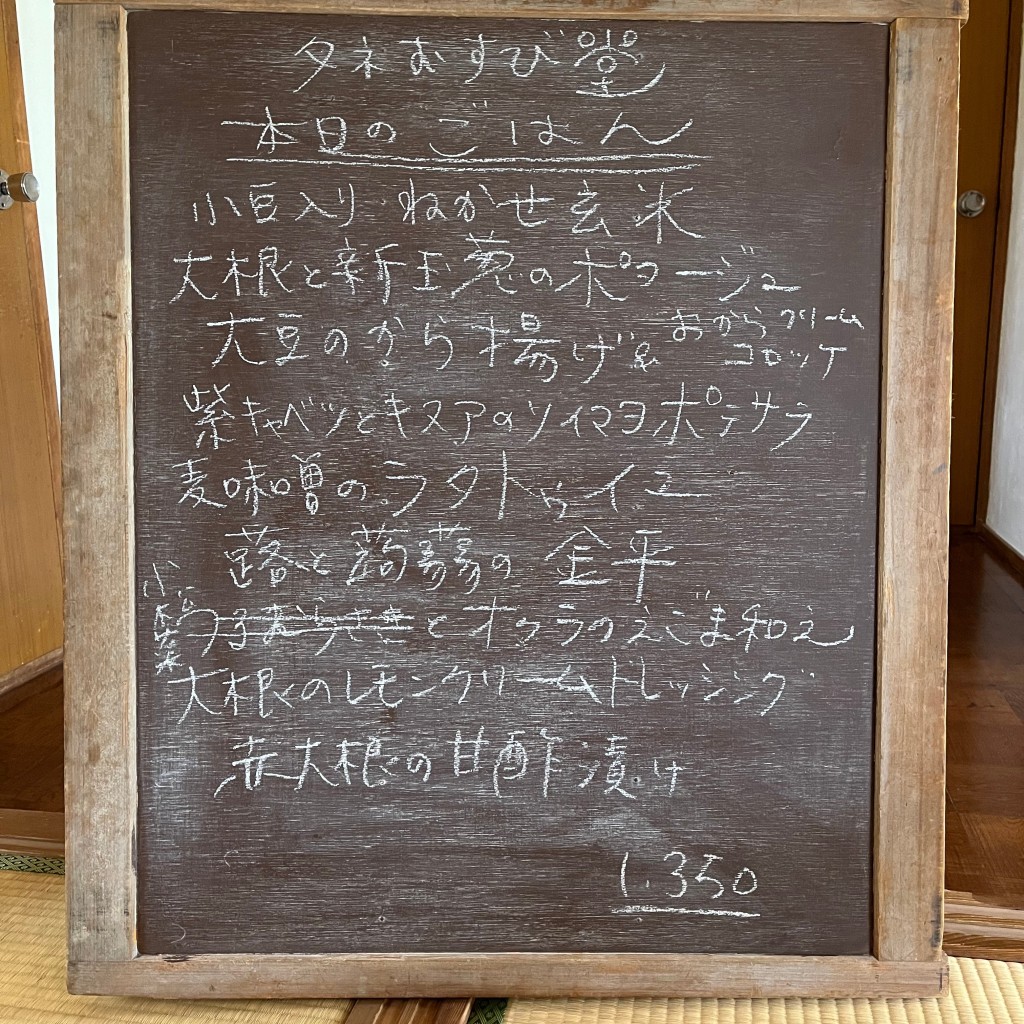 タネむすび堂
本日のごはん
小豆入りねかせ玄米
大根と新玉葱のポタージュ
大豆のから揚げ& おからクリームコロッケ
紫キャベツとキヌアのソイマヨポテサラ
麦味噌のラタトゥイユ
蕗と蒟蒻の金平
小松菜とオクラのえごま和え
大根のレモンクリームドレッシング
赤大根の甘酢漬け
1.350